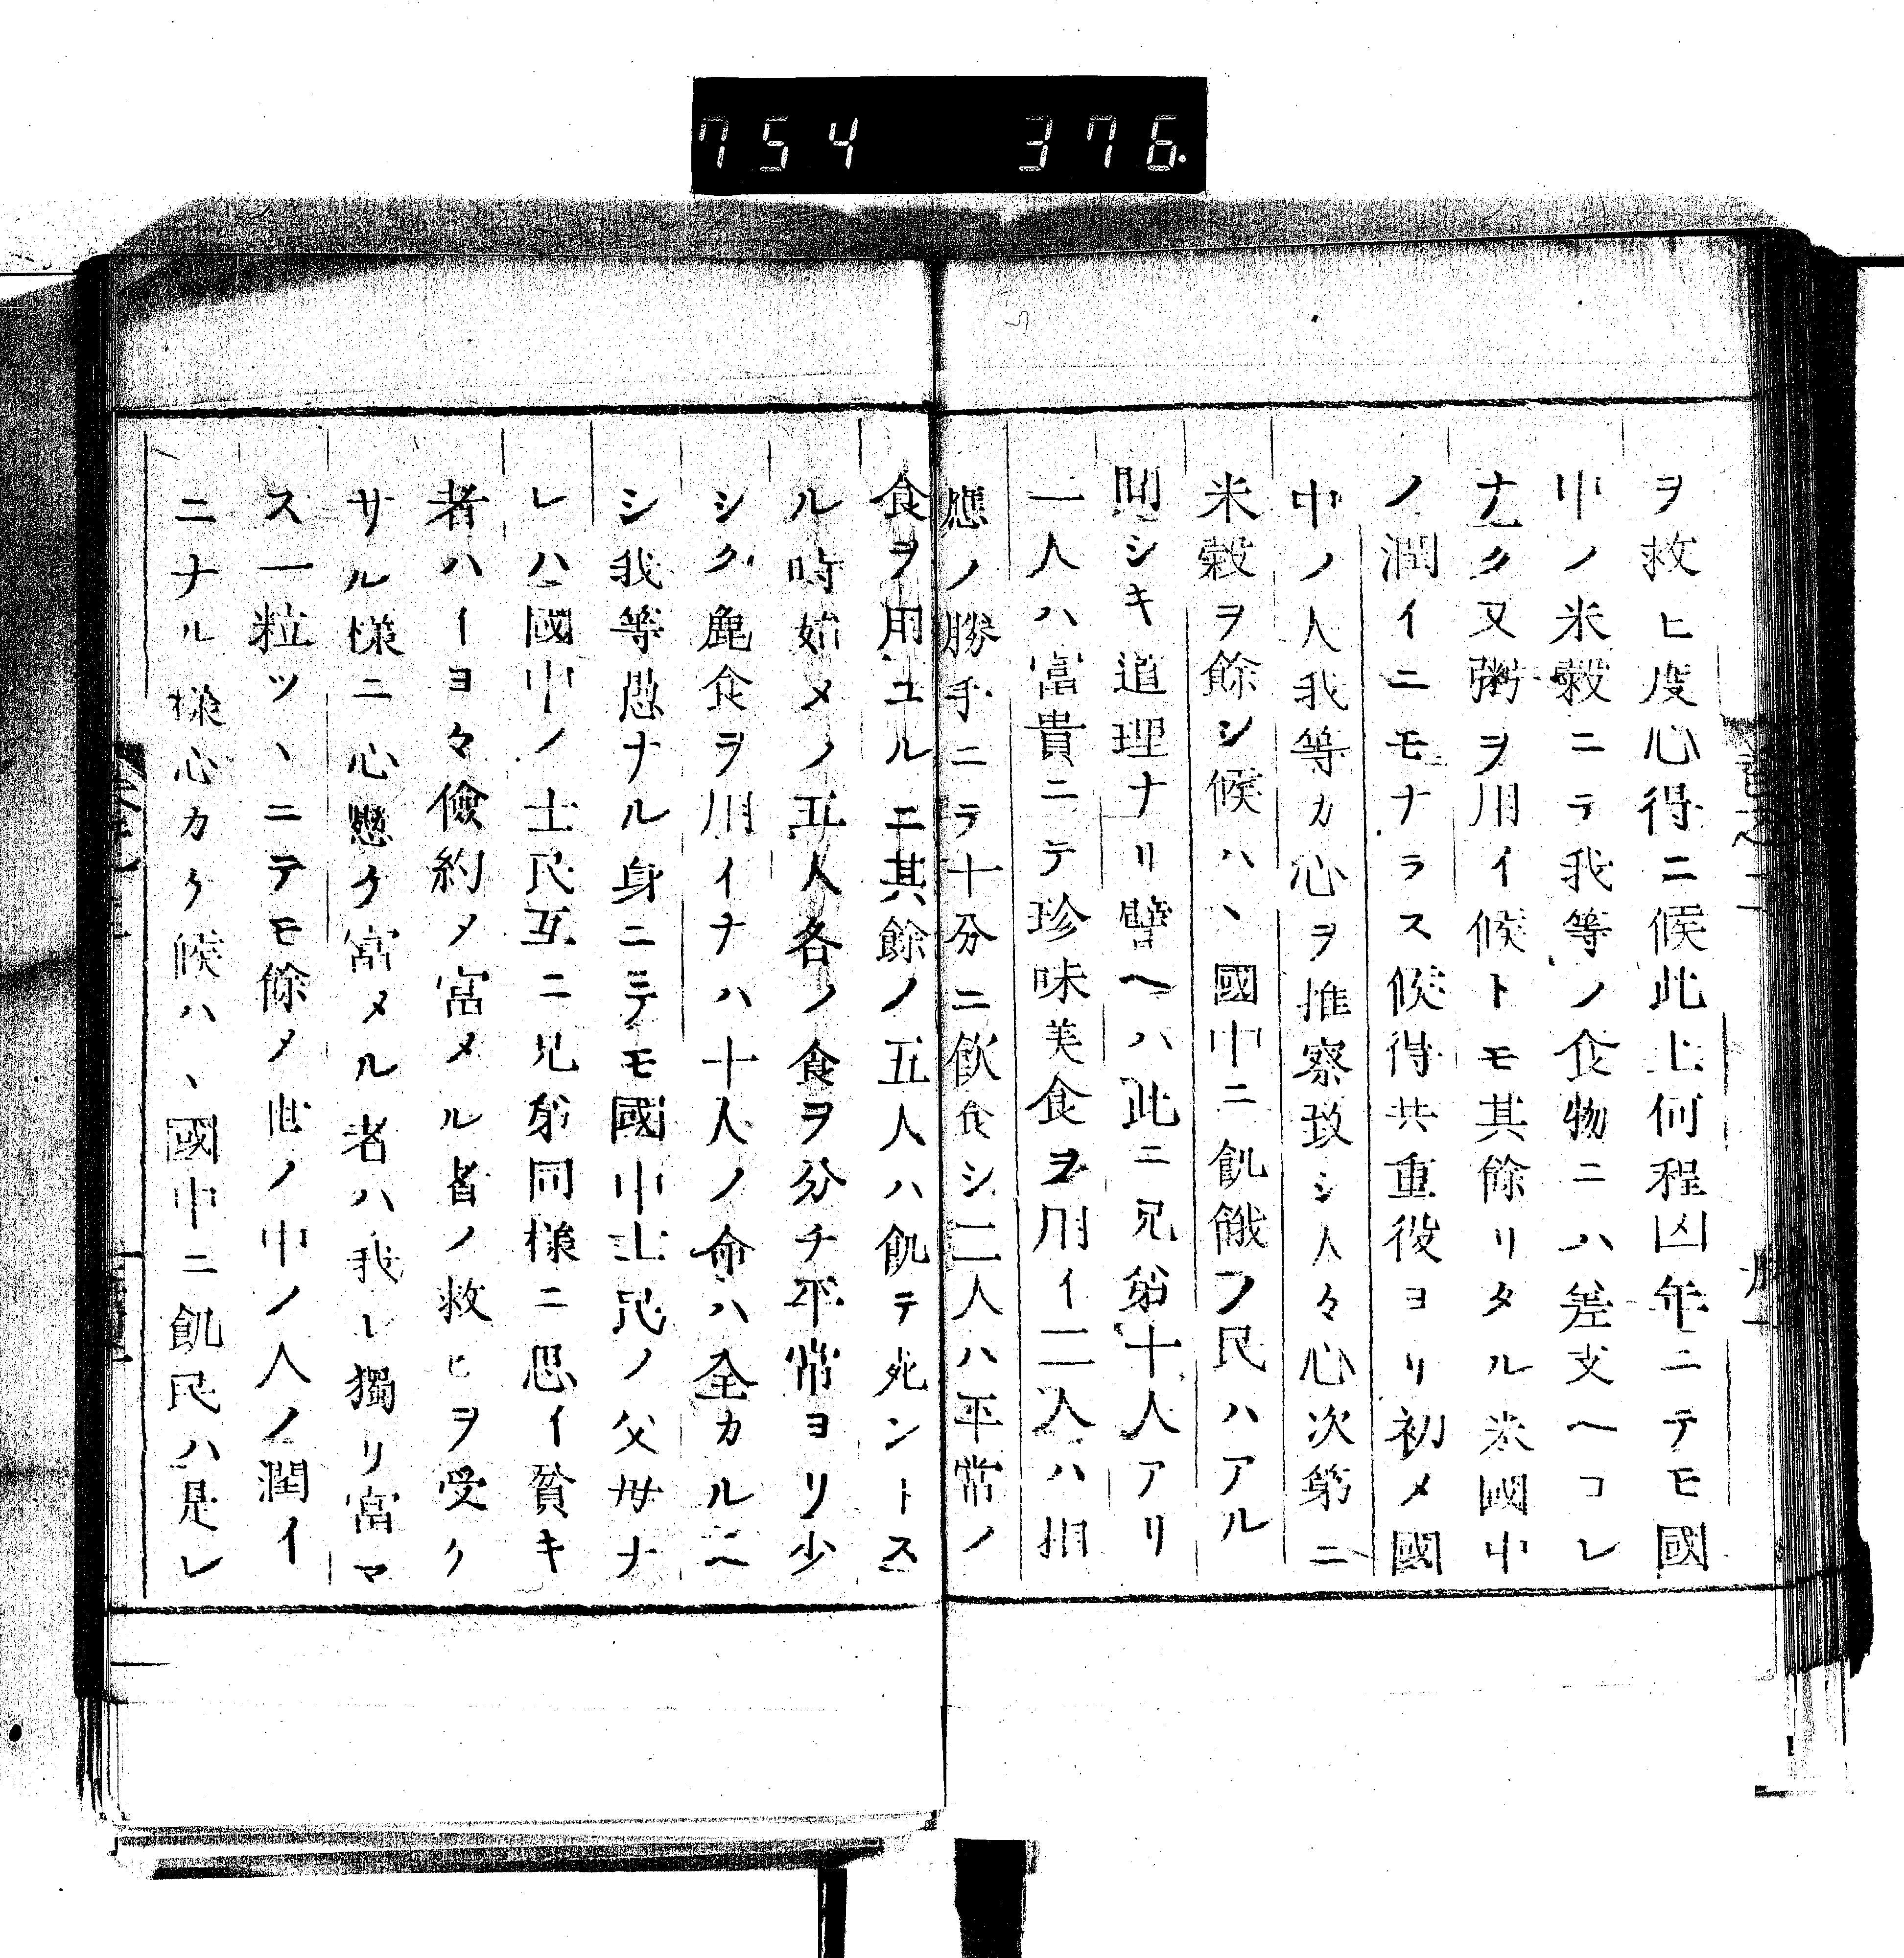 754 376.
ヲ救ヒ度心得ニ候此上何程凶年ニテモ國
中ノ米穀ニテ我等ノ食物ニハ差支ヘコレ
ナク又粥ヲ用イ候トモ其餘リタル米國中
ノ潤イニモナラス候得共重役ヨリ初メ國
中ノ人我等カ心ヲ推察致シ人々心次第ニ
米穀ヲ餘シ候ハヽ國中ニ飢餓フ民ハアル
間シキ道理ナリ譬ヘハ此ニ兄弟十人アリ
一人ハ富貴ニテ珍味美食ヲ用イ二人ハ相
應ノ勝手ニテ十分ニ飲食シ二人ハ平常ノ
食ヲ用ユルニ其餘ノ五人ハ飢テ死ントス
ル時始メノ五人各ノ食ヲ分チ平常ヨリ少
シク麁食ヲ用イナハ十人ノ命ハ全カルヘ
シ我等愚ナル身ニテモ國中士民ノ父母ナ
レハ國中ノ士民互ニ兄弟同様ニ思イ貧キ
者ハイヨ々儉約メ富メル者ノ救ヒヲ受ク
サル様ニ心懸ケ富メル者ハ我レ獨リ富マ
ス一粒ツヽニテモ餘メ世ノ中ノ人ノ潤イ
ニナル様心カケ候ハヽ國中ニ飢民ハ是レ